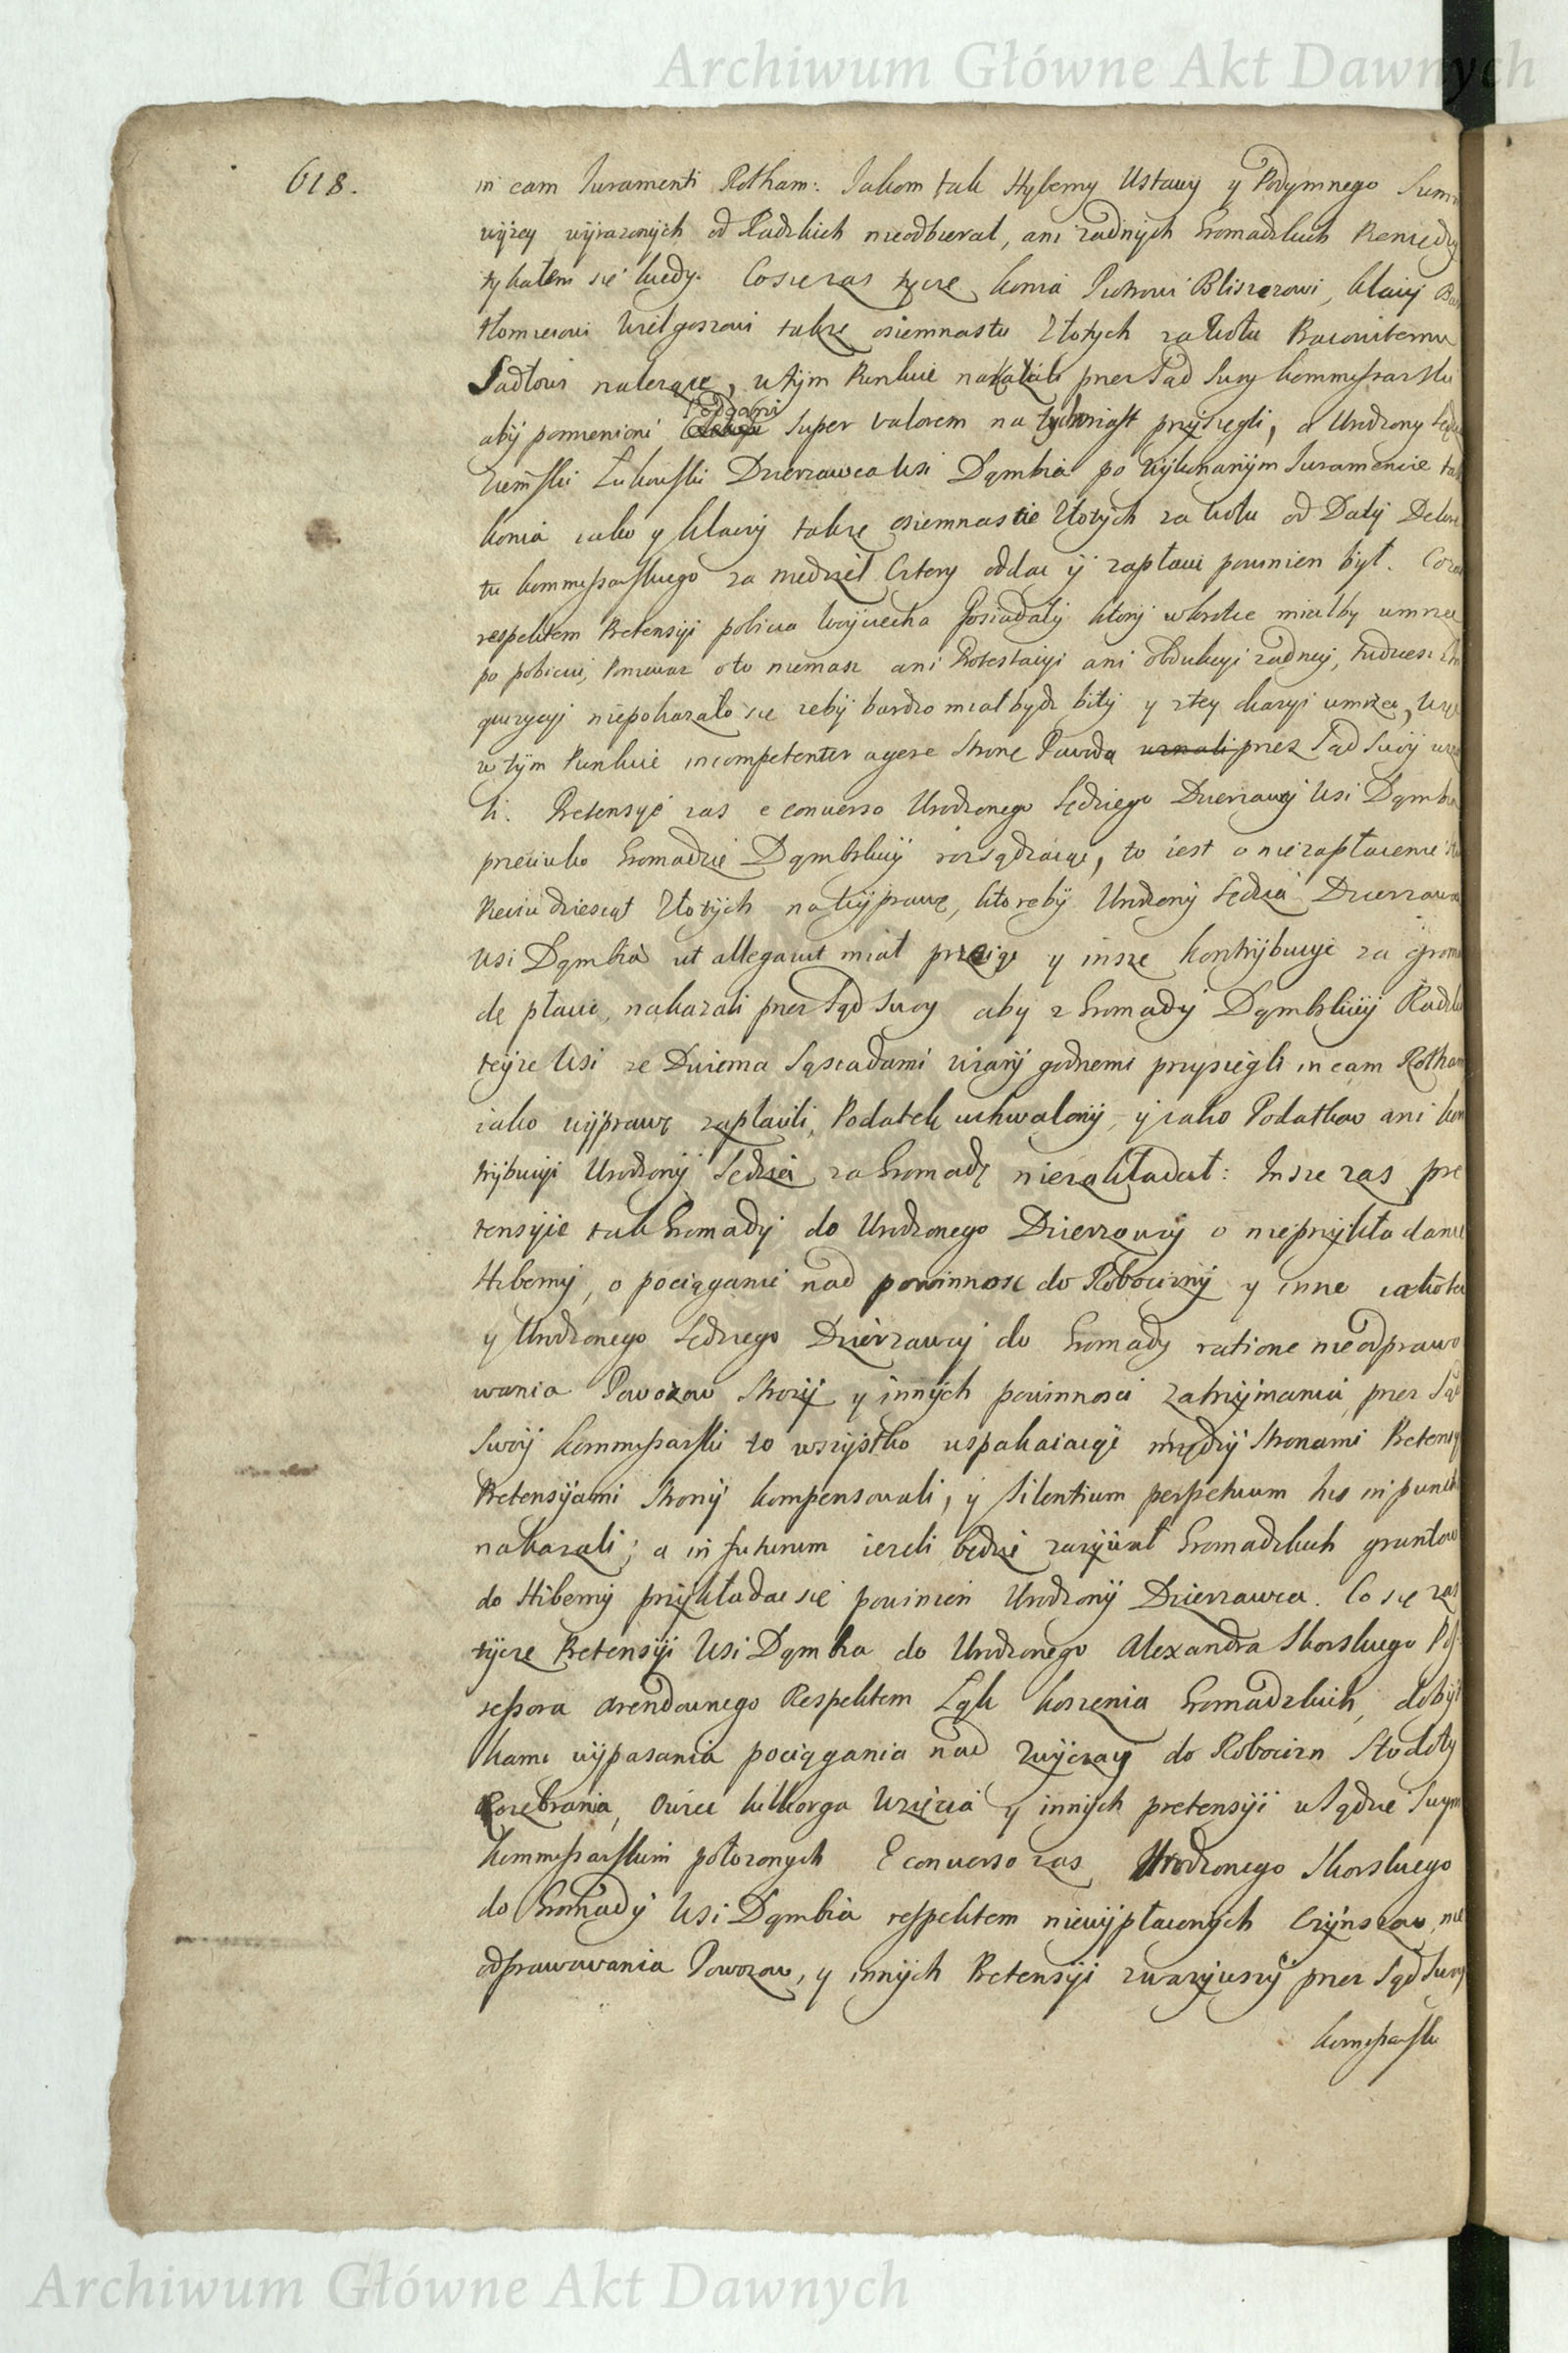 Archiwum Główne Akt Dawnych
618.
in eam Juramenti Rotham: Jakom tak Hyberny Ustawy y Podymnego Sum
wyżey wyrazonych od Radzkich nieodbierał, ani zadnych Gromadzkich Pieniędzy
tykałem się kiedy. Co się zas tycze konia Piotrowi Bliszczowi, klaczy Bar
tłomieiowi Wielgoszowi takze osiemnastu Złotych za Wołu
Sadłowi nalezące, w tym Punkcie nakazali przez Sąd Swoy Kommissarski
aby pomienieni Poddani super valorem na tychmiast przysięgli, a Urodzony Sędzia
Ziemski Łukowski Dzierzawca Wsi Dąmbia po wykonanym Juramencie tak
konia iako y klaczy takze osiemnascie Złotych za Wołu od Daty Dekre
tu Kommissarskiego za niedziel Cztery oddac y zapłacic powinien był. Co zas
respektem Pretensyi pobicia Woyciecha ktory wkrotce miałby umrzec
po pobiciu, Poniewaz o to niemasz ani Protestacyi ani Obdukcyi zadney, tudziesz z In
quizycyi niepokazało się zeby bardzo miał bydz bity y z tey okazyi umrzec, więc
w tym Punkcie incompetenter agere Stronę Powodą uznali przez Sąd Swoy uzna
li. Pretensye zas e converso Urodzonego Sędziego Dzierzawcy Wsi Dąmbia
przeciwko Gromadzie Dąmbskiey rozsądzaiąc, to iest o niezapłacenie
dziesiąt Złotych na Wyprawę, ktoreby Urodzony Sędzia Dzierzawca
Wsi Dąmbia ut allegavit miał y insze kontrybucye za groma
dę płacic, nakazali przez Sąd Swoy aby z Gromady Dąmbskiey Radzki
teyze Wsi ze Dwiema Sąsiadami wiary godnemi przysiegli in eam Rotham
iako wyprawę zapłacili, Podatek uchwalony, y iako Podatkow ani kon
trybucyi Urodzony Sędzia za Gromadę niezakładał: Insze zas pre
tensyie tak Gromady do Urodzonego Dzierzawcy o nieprzykładanie
Hiberny, o pociąganie nad powinnosc do Robocizny y inne iakoto
y Urodzonego Sędziego Dzierzawcy do Gromady ratione nieodprawo
wania Powozow Strozy y innych powinnosci zatrzymania, przez Sąd
Swoy Kommissarski to wszystko uspakaiaiąc między Stronami Pretensye
Pretensyami Strony kompensowali, y Silentium perpetuum his in punctis
nakazali; a in futurum iezeli będzie zazywał Gromadzkich gruntow
do Hiberny przykładac się powinien Urodzony Dzierzawca. Co się zas
tycze Pretensyi Wsi Dąmbia do Urodzonego Alexandra Skorskiego Pos
sessora arendownego Respektem Łąk koszenia Gromadzkich, dobyt
kami wypasania pociągania nad zwyczay do Robocizn Stodoły
Rozebrania, Owiec kilkorga Wzięcia y innych pretensyi w Sądzie Swym
Kommissarskim połozonych E converso zas Urodzonego Skorskiego
do Gromady Wsi Dąmbia respektem niewypłaconych Czynszow, nie
odprawowania Powozow, y innych Pretensyi zwazywszy przez Sąd Swoy
Komissarski
Archiwum Główne Akt Dawnych